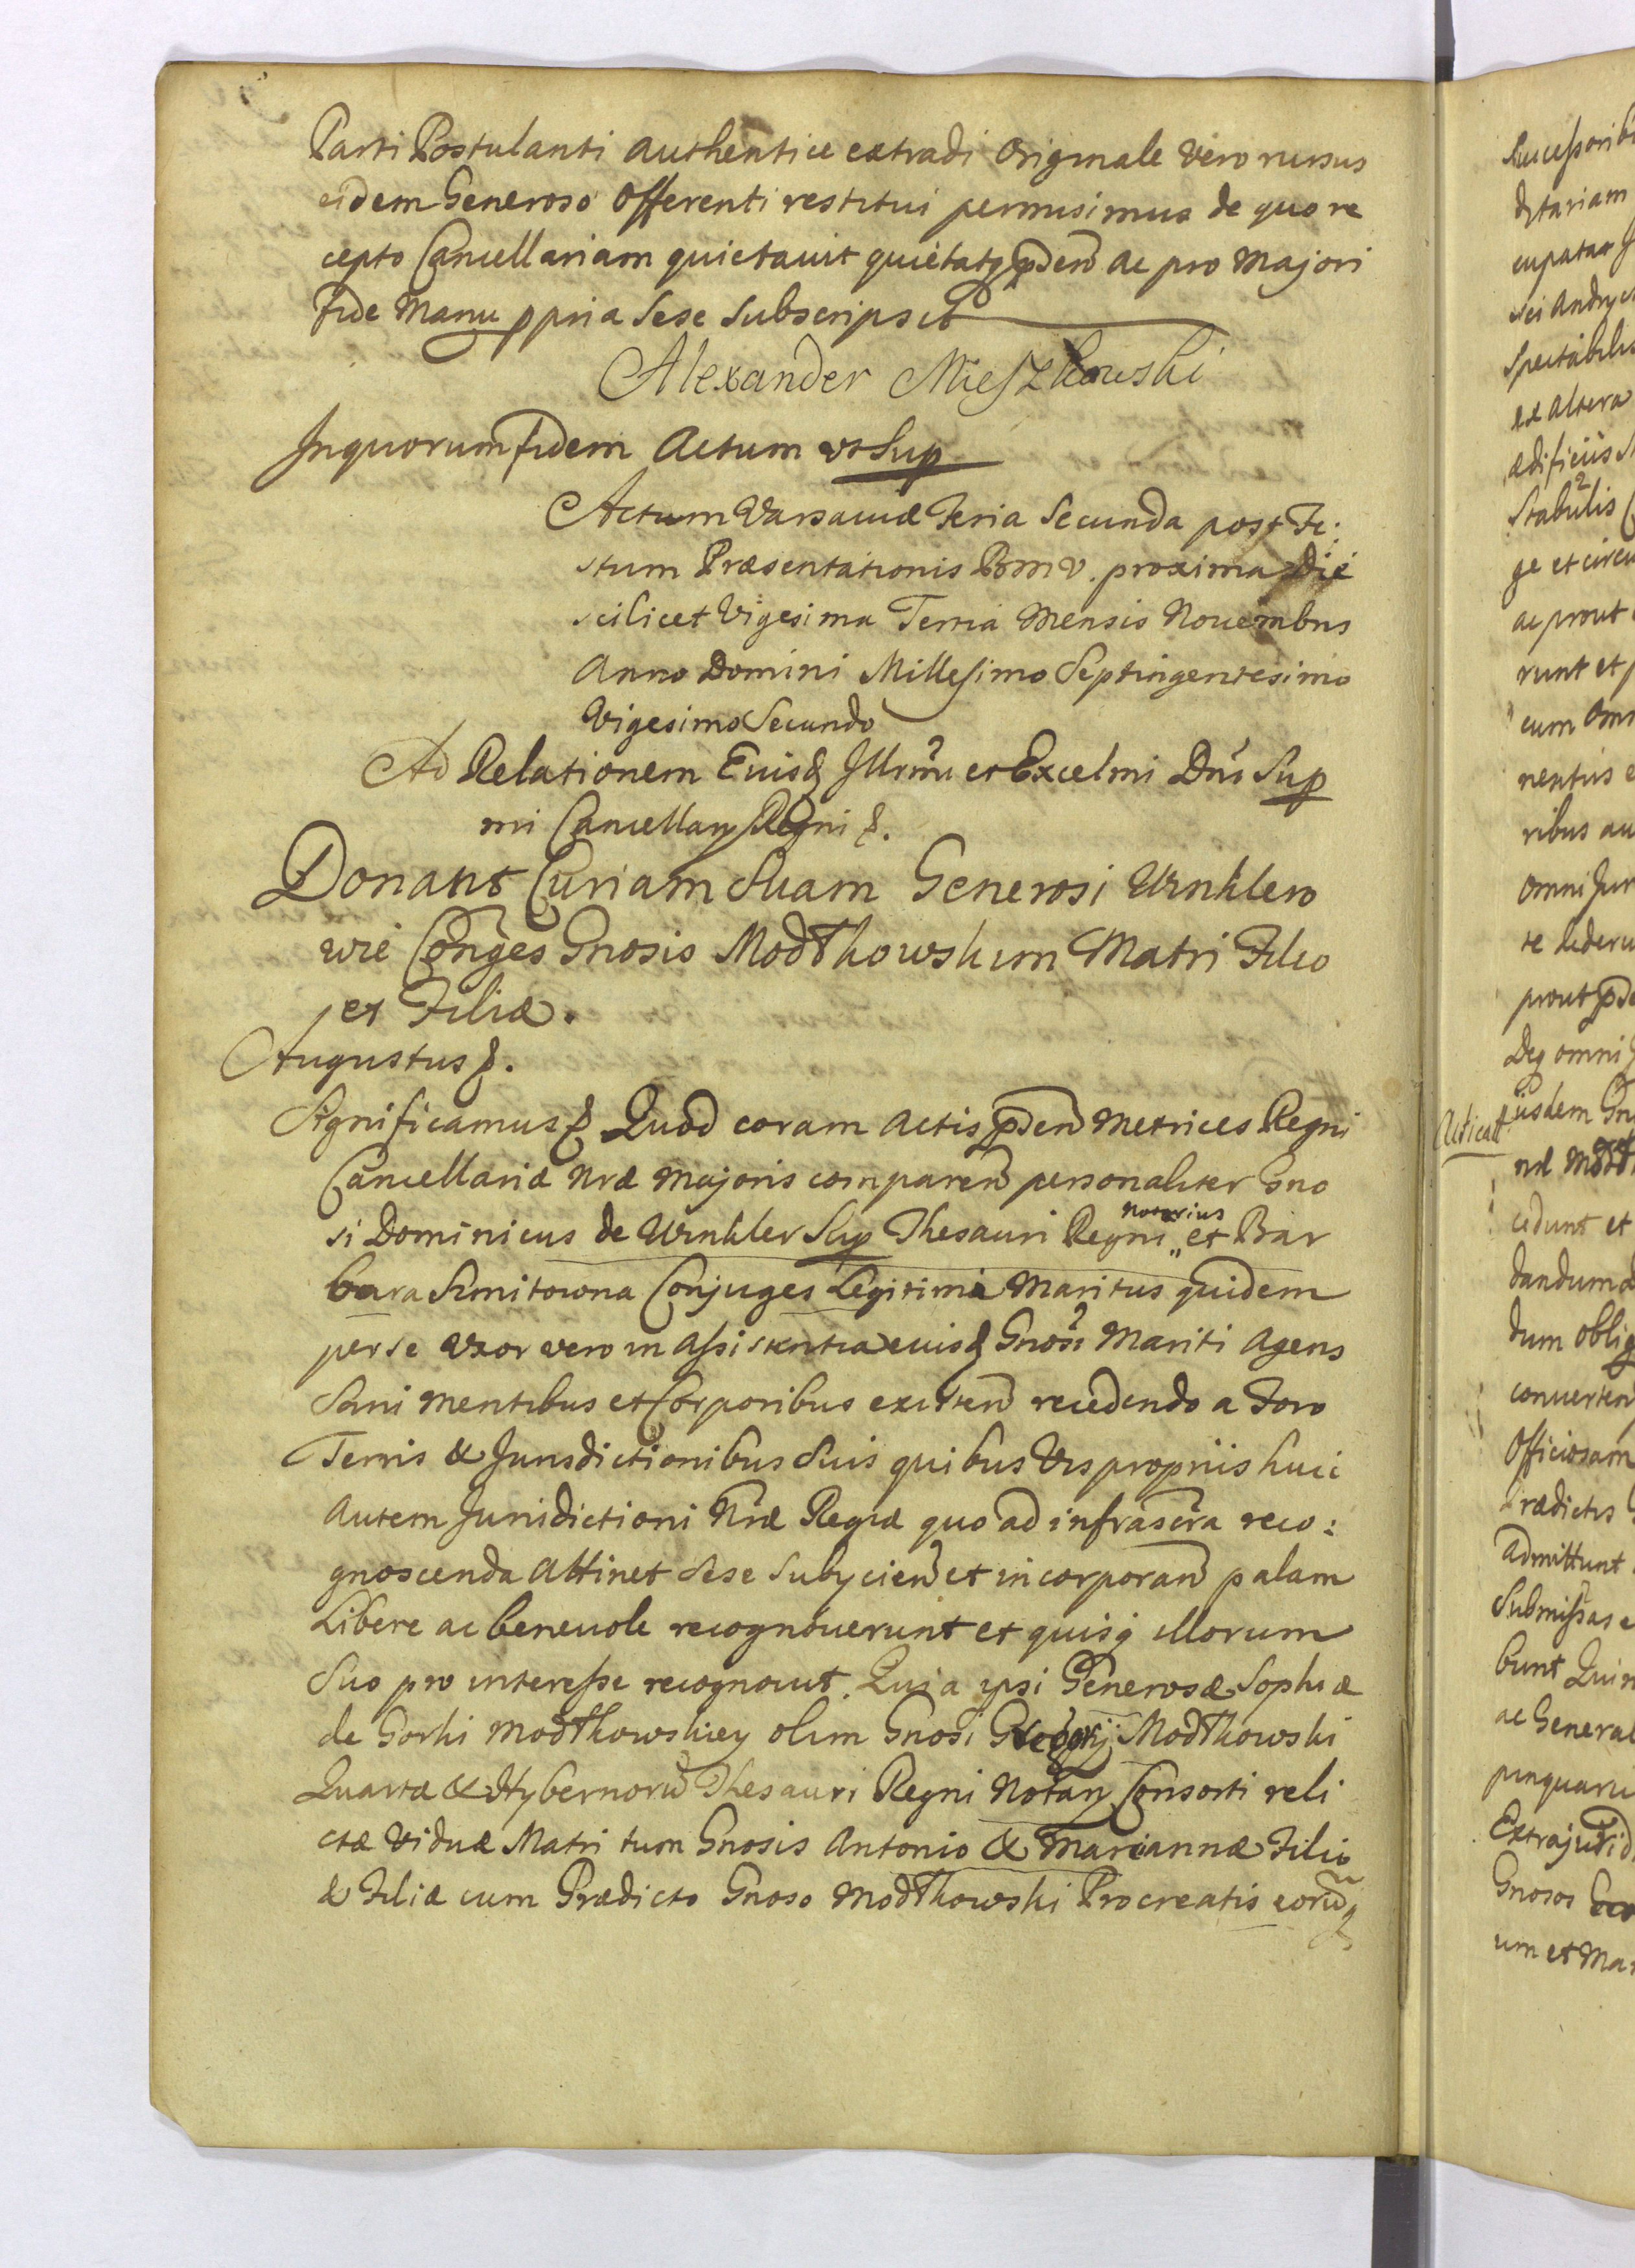 Parti Postulanti authentice extradi Originale vero rursus
eidem Generoso Offerenti restitui permisimus de quo re
cepto Cancellariam quietavit quietatq pden ac pro Majori
fide Manu ppria sese subscripsit
Alexander Mieszkowski
In quorum fidem Actum vt Sup
Actum Varsaviæ Feria Secunda post Fe:
stum Præsentationis B M V. proxima Die
scilicet Vigesima Tertia Mensis Novembris
Anno Domini Millesimo Septingentesimo
Vigesimo Secundo
Ad Relationem Eiusd Illrmi et Excelmi Dni Sup
mi Cancellarij Regni &.
Donant Curiam Suam Generosi Winklero
wie Conges Gnosis Modtkowskim Matri Filio
et Filiæ.
Augustus &.
Significamus & Quod coram Actis pden Metrices Regni
Cancellariæ Nræ Majoris comparen personaliter Gno
si Dominicus de Winkler Sup Thesauri Regni Notarius et Bar
bara Smitowna Conjuges Legitimi Maritus quidem
per se Uxor vero in Assistentia eiusd Gnosi Mariti Agens
Sani mentibus et Corporibus existen recedendo a Foro
Terris & Jurisdictionibus Suis quibusvis propriis huic
autem Jurisdictioni Nræ Regiæ quo ad infrascra reco:
gnoscenda attinet sese subycien et incorporan palam
Libere ac benevole recognoverunt et quisq illorum
Suo pro interesse recognovit. Quia ipsi Generosæ Sophiæ
de Gorki Modtkowskiey olim Gnosi Gregorij Modtkowski
Quartæ & Hybernorū Thesauri Regni Notarij Consorti reli
ctæ Viduæ Matri tum Gnosis Antonio & Mariannæ Filio
& Filiæ cum Prædicto Gnoso Modtkowski Procreatis eorūq
Successorib
ditariam
cupatar
Spectabilis
ex altera
ædificiis
Stabulis
ge et circu
ac prout
runt et p
cum Omn
nentiis e
ribus au
omni Jur
te dederu
prout pde
Deq omni
Acticat
eiusdem Gn
cedunt et
dandum
dum oblig
converten
Officiosam
Prædictis
admittunt
Submissas
bunt Quin
ac General
pinquaru
Extrajudid
Gnosos
um et Mar